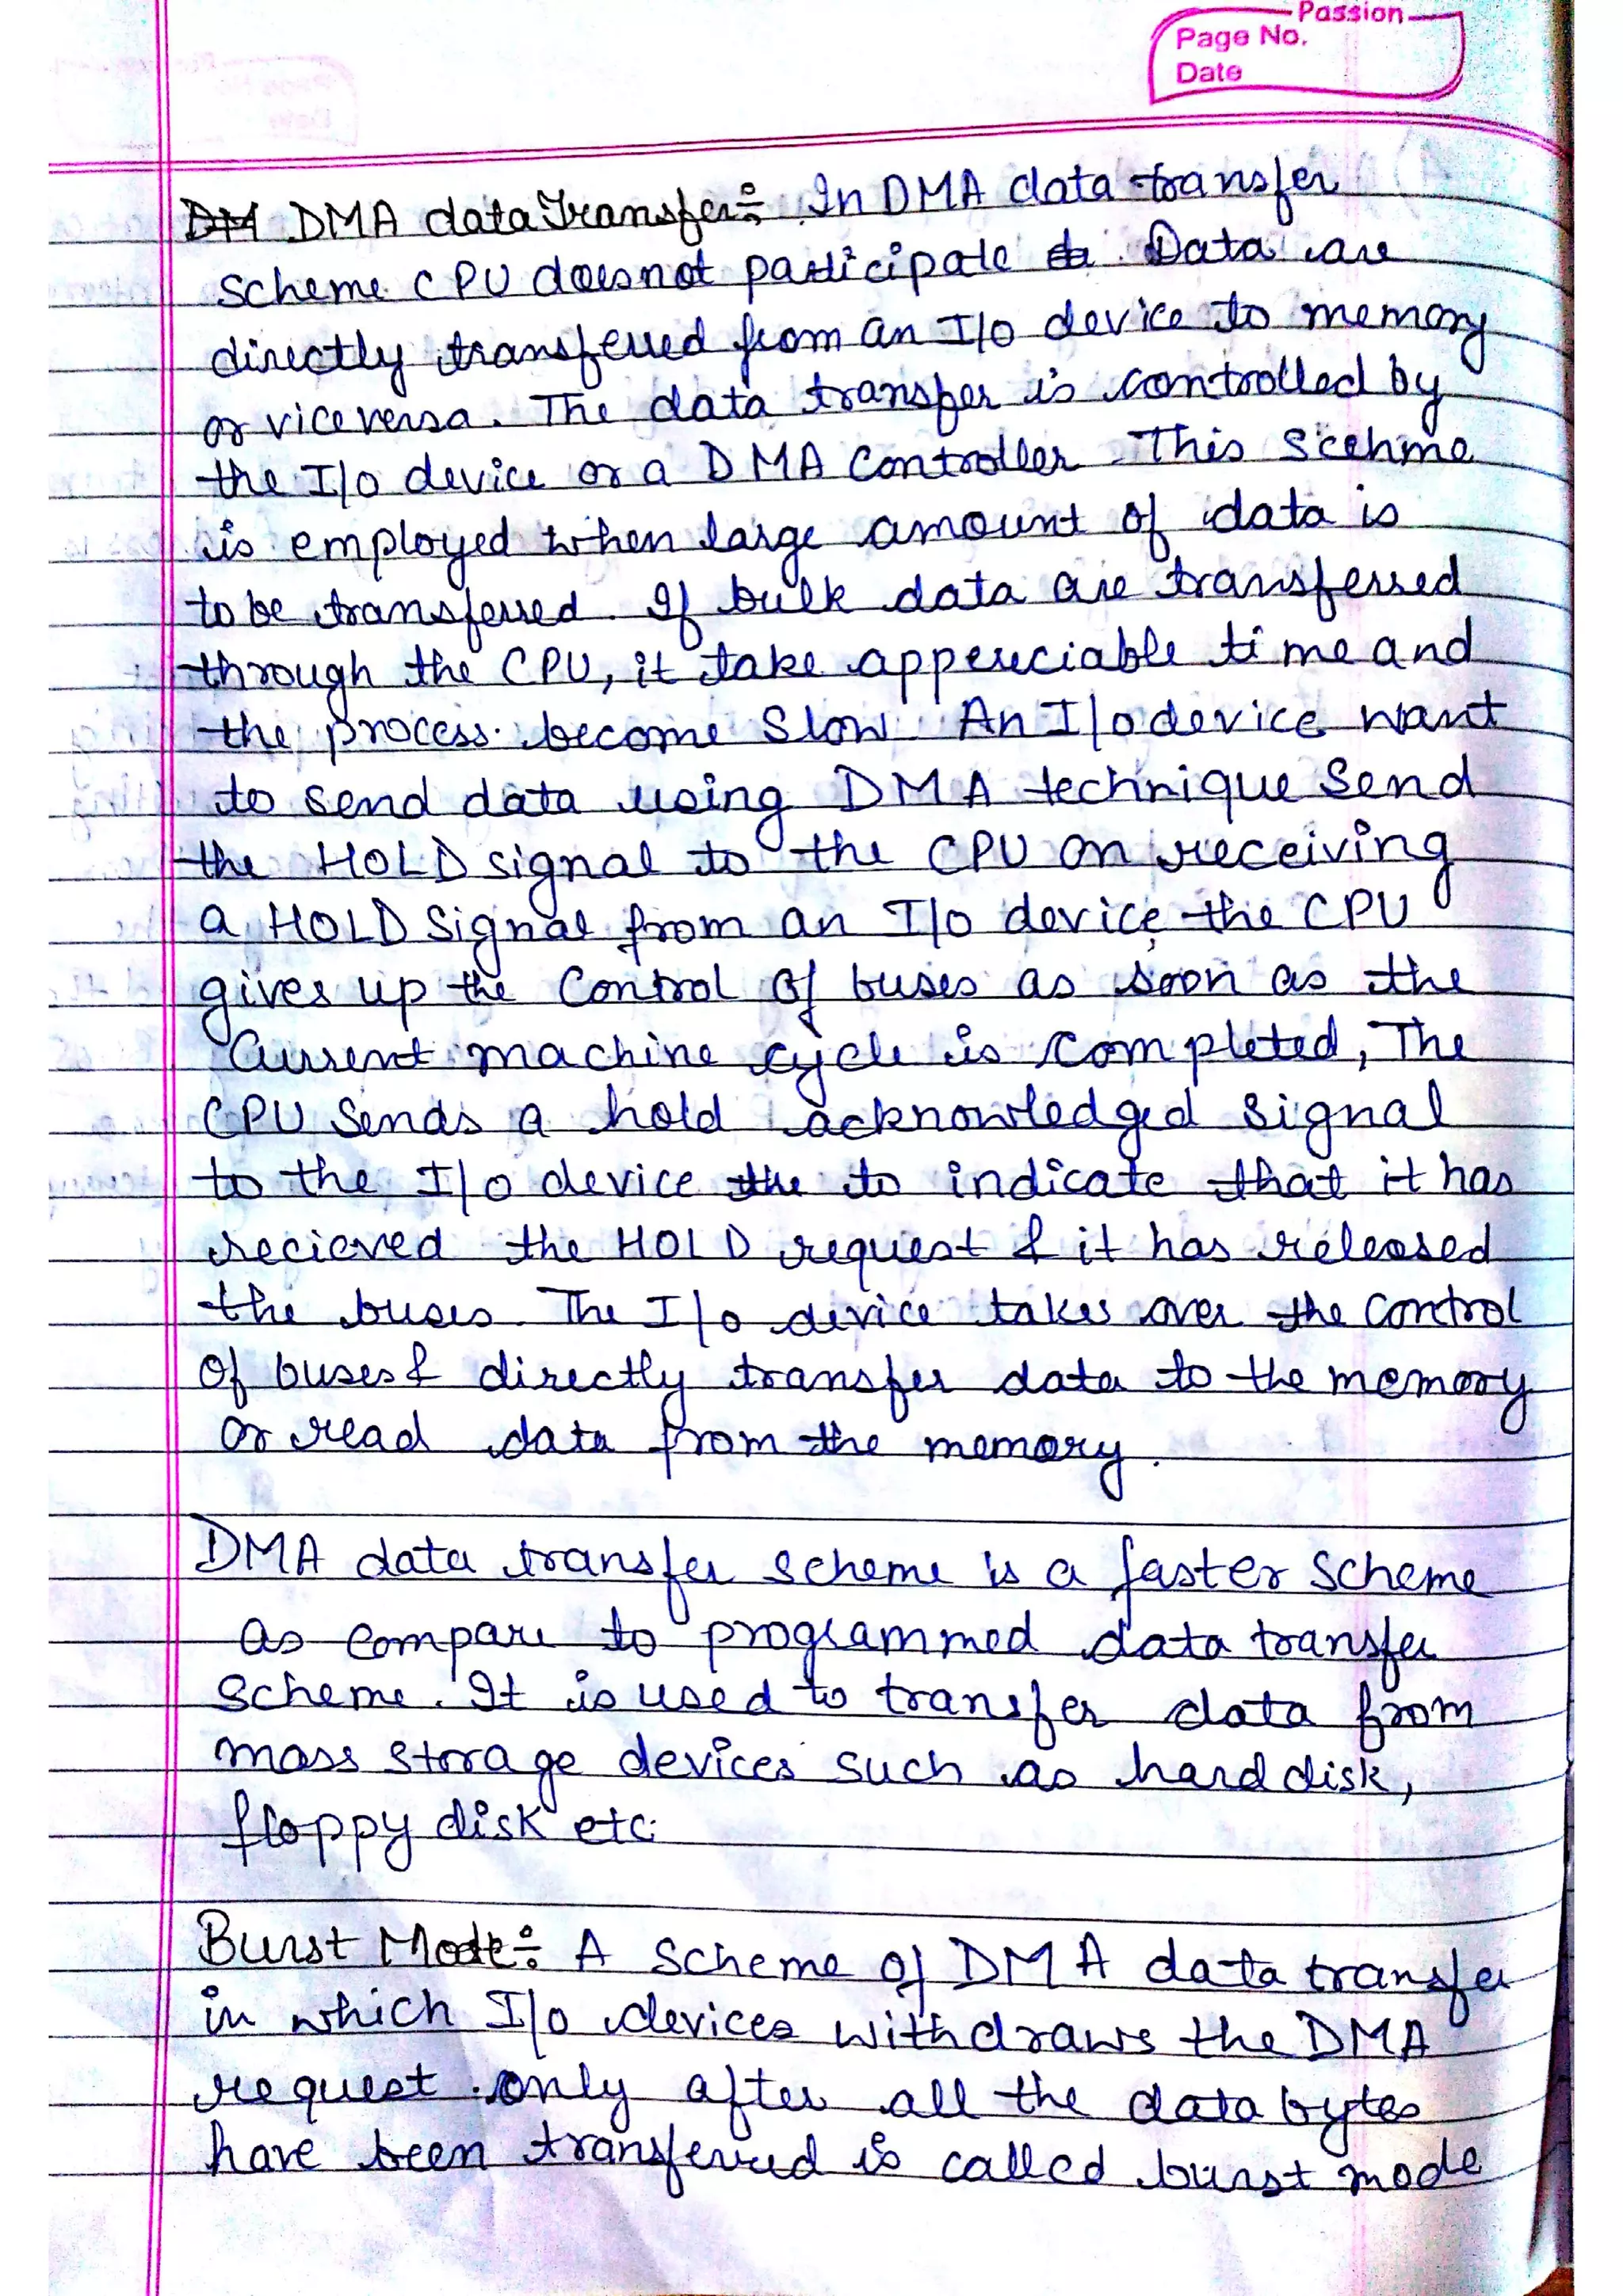 Passion
Page No.
Date
DMA data Transfer:- In DMA data transfer
scheme CPU does not participate. Data are
directly transferred from an I/O device to memory
or vice versa. The data transfer is controlled by
the I/O device or a DMA Controller. This Scehme
is employed when large amount of data is
to be transferred. If bulk data are transferred
through the CPU, it take apperciable time and
the process become Slow. An I/O device want
to send data using DMA technique Send
the HOLD signal to the CPU on receiving
a HOLD Signal from an I/O device, the CPU
gives up the Control of buses as soon as the
Current machine cycle is completed, The
CPU Sends a hold acknowledged signal
to the I/O device to indicate that it has
recieved the HOLD request & it has released
the buses. The I/O device takes over the Control
Of buses & directly transfer data to the memory
or read data from the memory.
DMA data transfer scheme is a faster Scheme
as compare to programmed data transfer
Scheme. It is used to transfer data from
mass storage devices such as hard disk,
floppy disk etc.
Burst Mode:- A Scheme of DMA data transfer
in which I/O devices withdraws the DMA
request only after all the data bytes
have been transferred is called burst mode